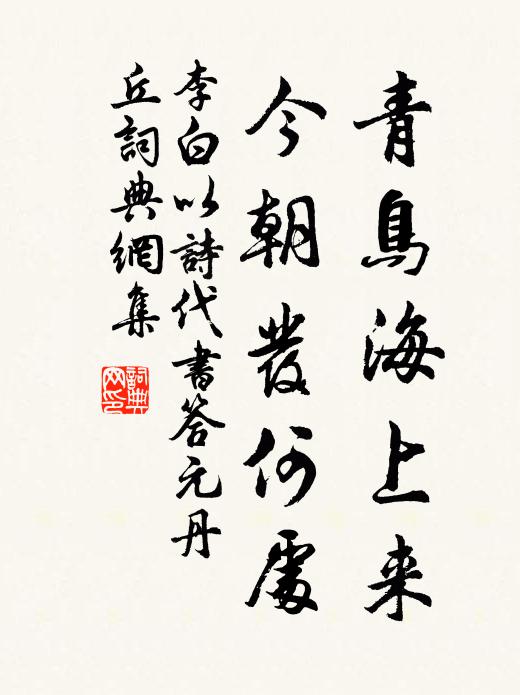 青鳥海上来
今朝發何處
李白以詩代書答元丹
丘詞典網集
詞典网印